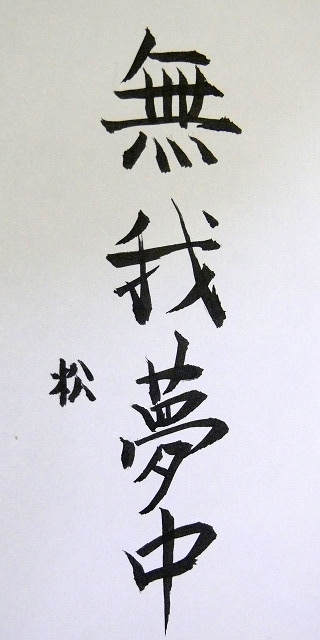 無我夢中
松